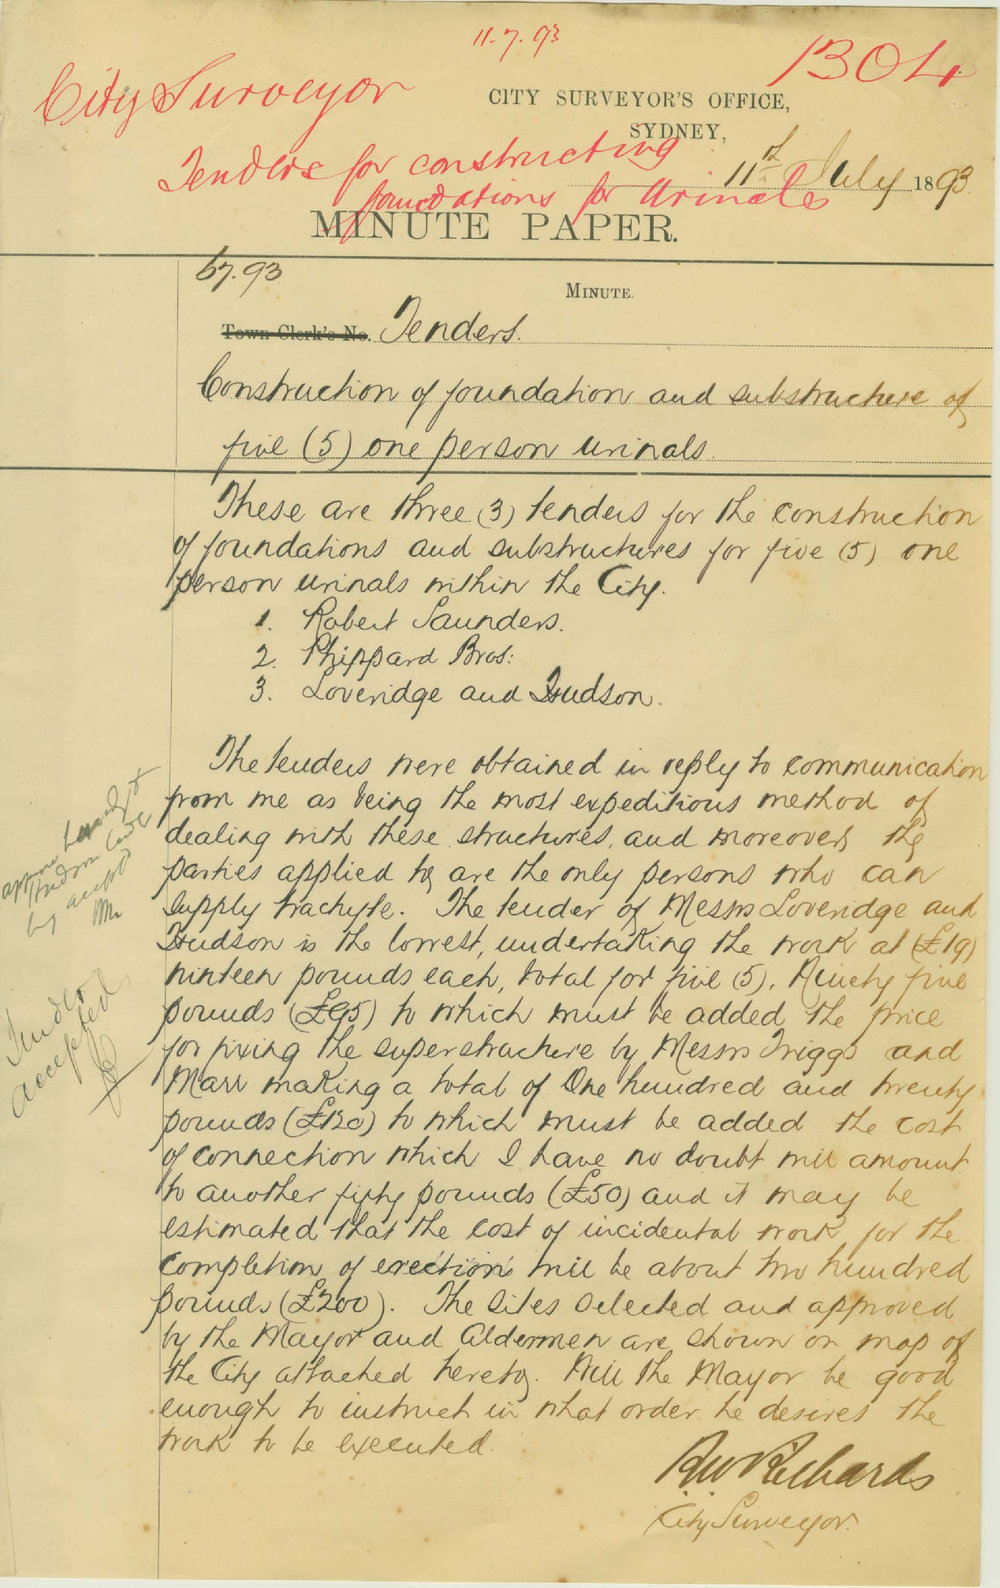 11.7.93
1304
City Surveyor
CITY SURVEYOR'S OFFICE,
SYDNEY,
Tenders for constructing
foundations for Urinals
11th July 1893.
MINUTE PAPER.
67.93
MINUTE.
Town Clerk's No. Tenders.
Construction of foundation and substructure of
five (5) one person urinals.
These are three (3) tenders for the construction
of foundations and substructures for five (5) one
person urinals within the City.
1. Robert Saunders.
2. Phippard Bros:
3. Loveridge and Hudson.
The tenders were obtained in reply to communication
from me as being the most expeditious method of
dealing with these structures, and moreover, the
parties applied to, are the only persons who can
supply trachyte. The tender of Messrs Loveridge and
Hudson is the lowest, undertaking the work at (£19)
nineteen pounds each, total for five (5), Ninety five
pounds (£95) to which must be added the price
for fixing the superstructure by Messrs Triggs and
Marr making a total of One hundred and twenty
pounds (£120) to which must be added the cost
of connection which I have no doubt will amount
to another fifty pounds (£50) and it may be
estimated that the cost of incidental work for the
completion of erections will be about two hundred
pounds (£200). The sites selected and approved
by the Mayor and Aldermen are shown on map of
the City attached hereto. Will the Mayor be good
enough to instruct in what order he desires the
work to be executed.
RW Richards
City Surveyor.
Hudson
Tender
accepted